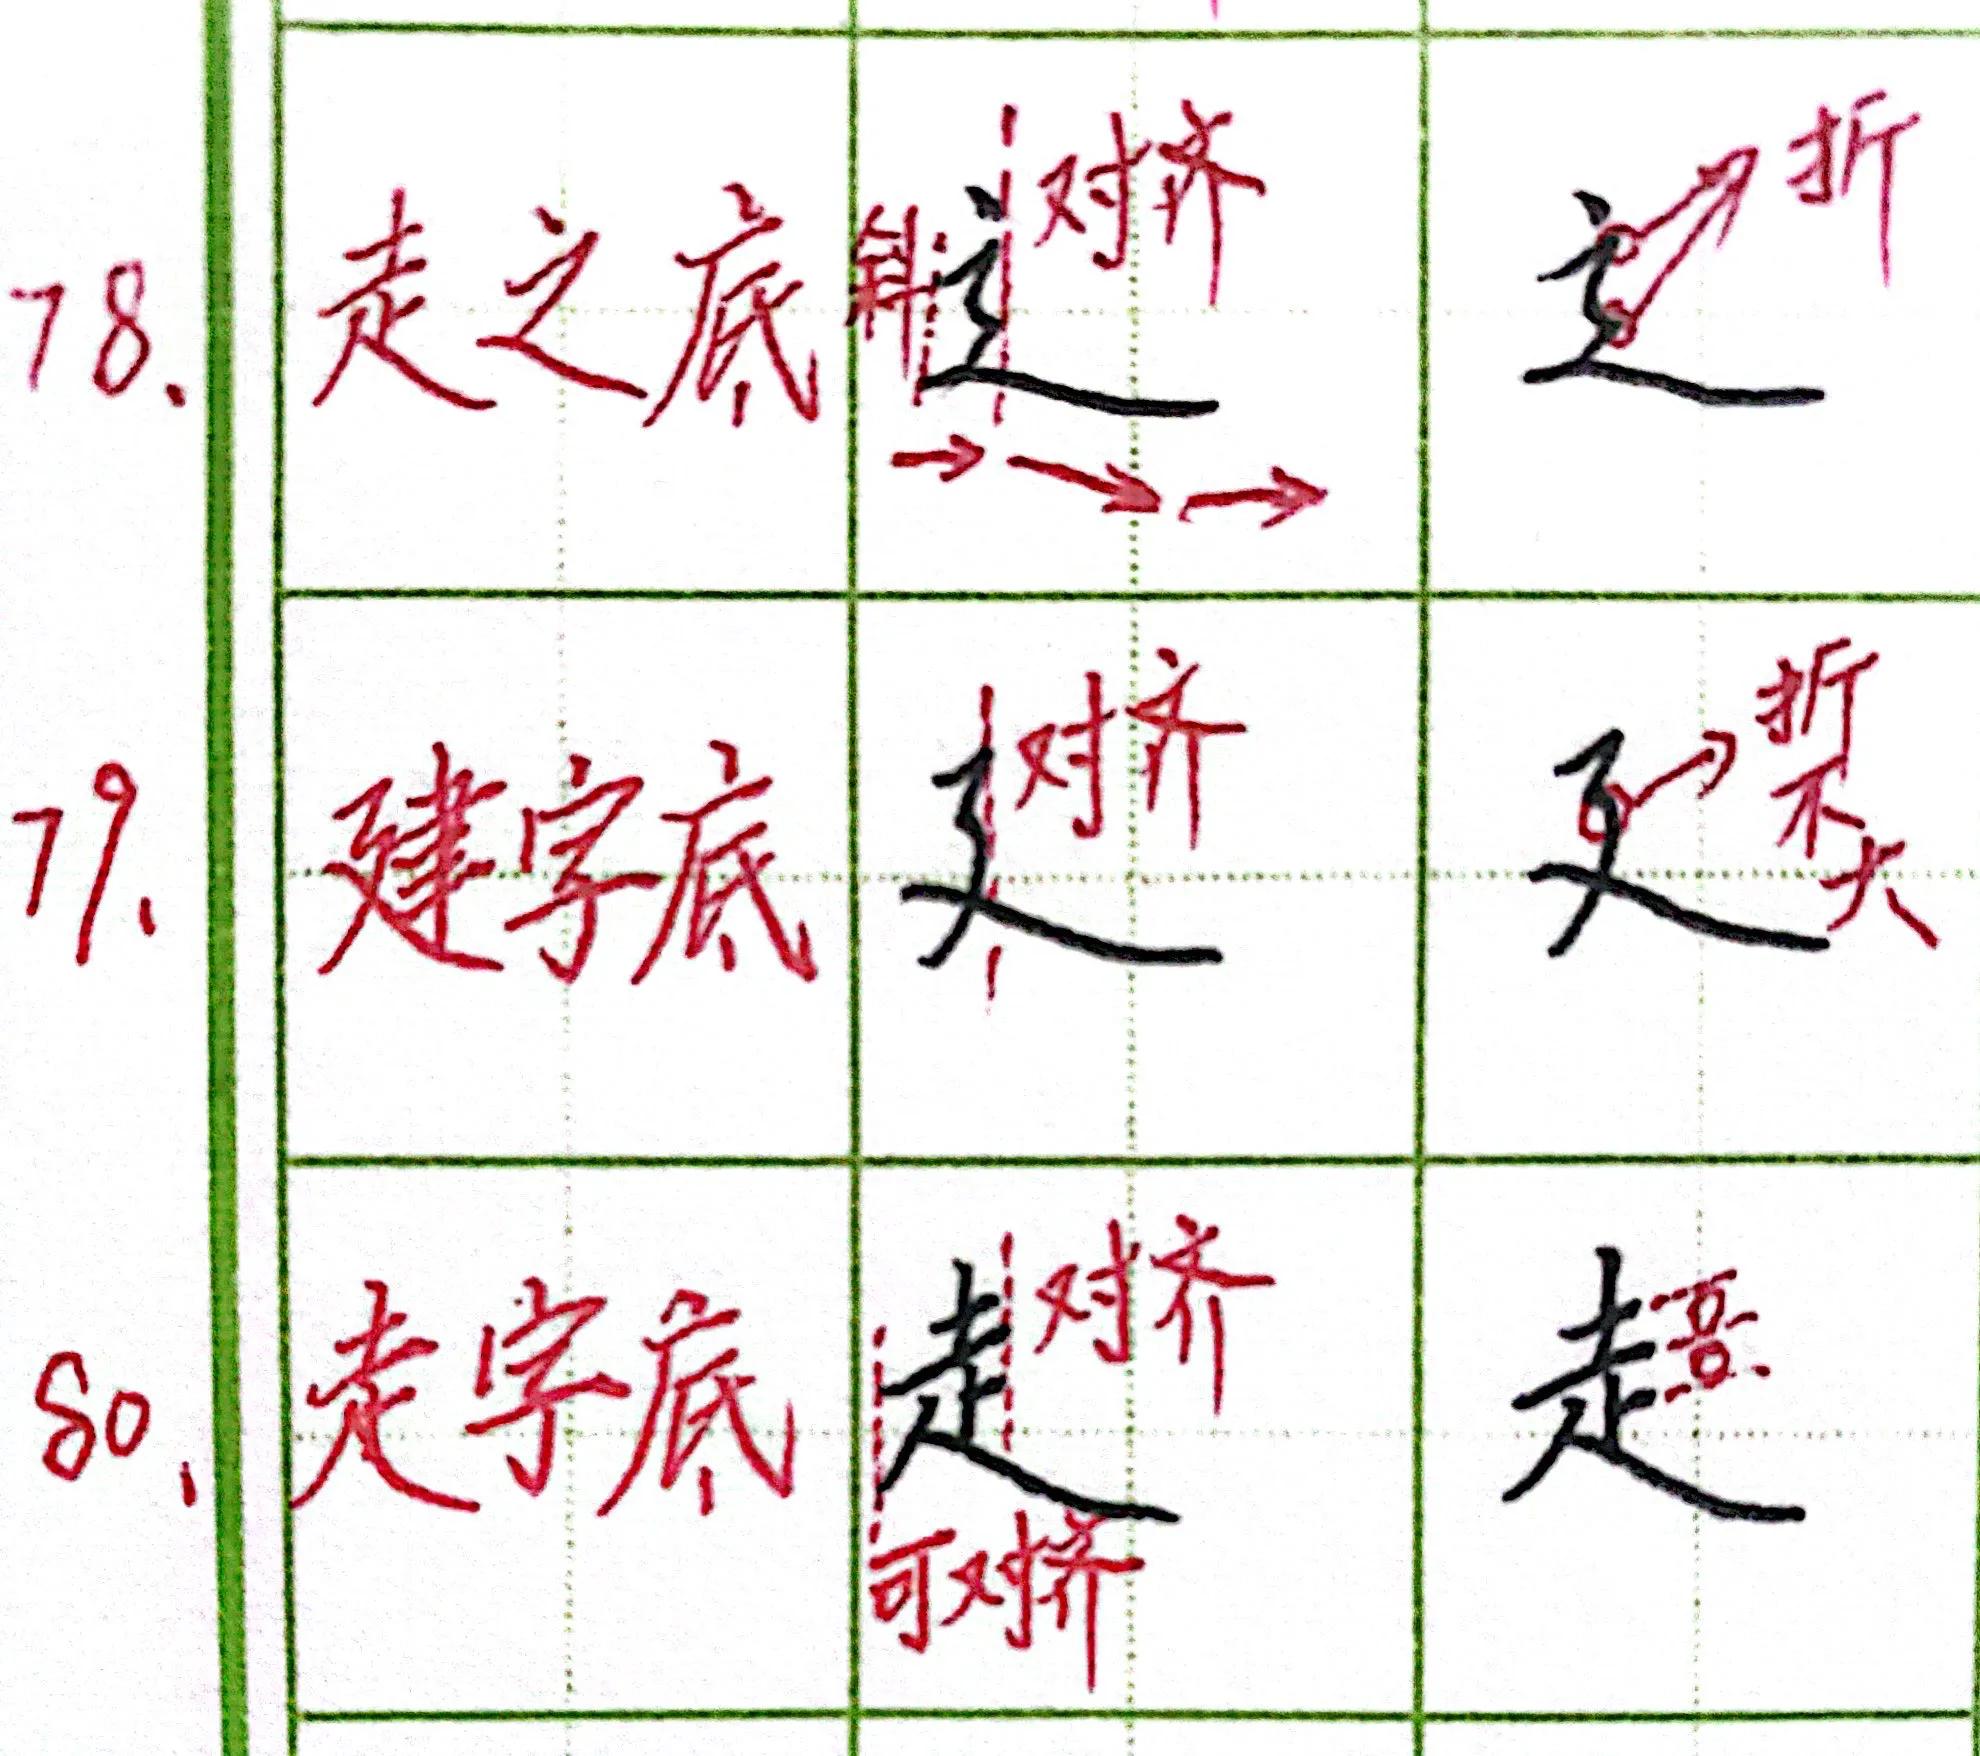 78. 走之底 斜 辶 对齐 辶 折
79. 建字底 廴 对齐 廴 折不大
80. 走字底 走 对齐 可对齐 走